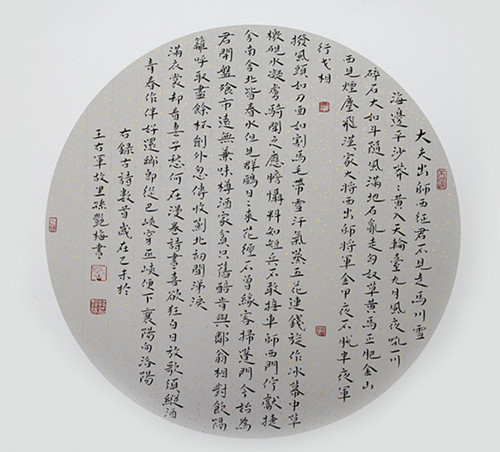 大夫出師西征君不見走馬川雪
海邊平沙莽々黃入天輪臺九月風夜吼一川
碎石大如斗隨風滿地石亂走匈奴草黃馬正肥金山
西見煙塵飛漢家大將西出師將軍金甲夜不脫半夜軍
行戈相
撥風頭如刀面如割馬毛帶雪汗氣蒸五花連錢旋作冰幕中草
檄硯水凝虜騎聞之應膽懾料知短兵不敢接車師西門佇獻捷
舍南舍北皆春水但見群鷗日々來花徑不曾緣客掃蓬門今始為
君開盤飧市遠無兼味樽酒家貧只舊醅肯與鄰翁相對飲隔
籬呼取盡餘杯劍外忽傳收薊北初聞涕淚
滿衣裳却看妻子愁何在漫卷詩書喜欲狂白日放歌須縱酒
青春作伴好還鄉即從巴峽穿巫峽便下襄陽向洛陽
右錄古詩數首歲在乙未於
王右軍故里孫艷梅書